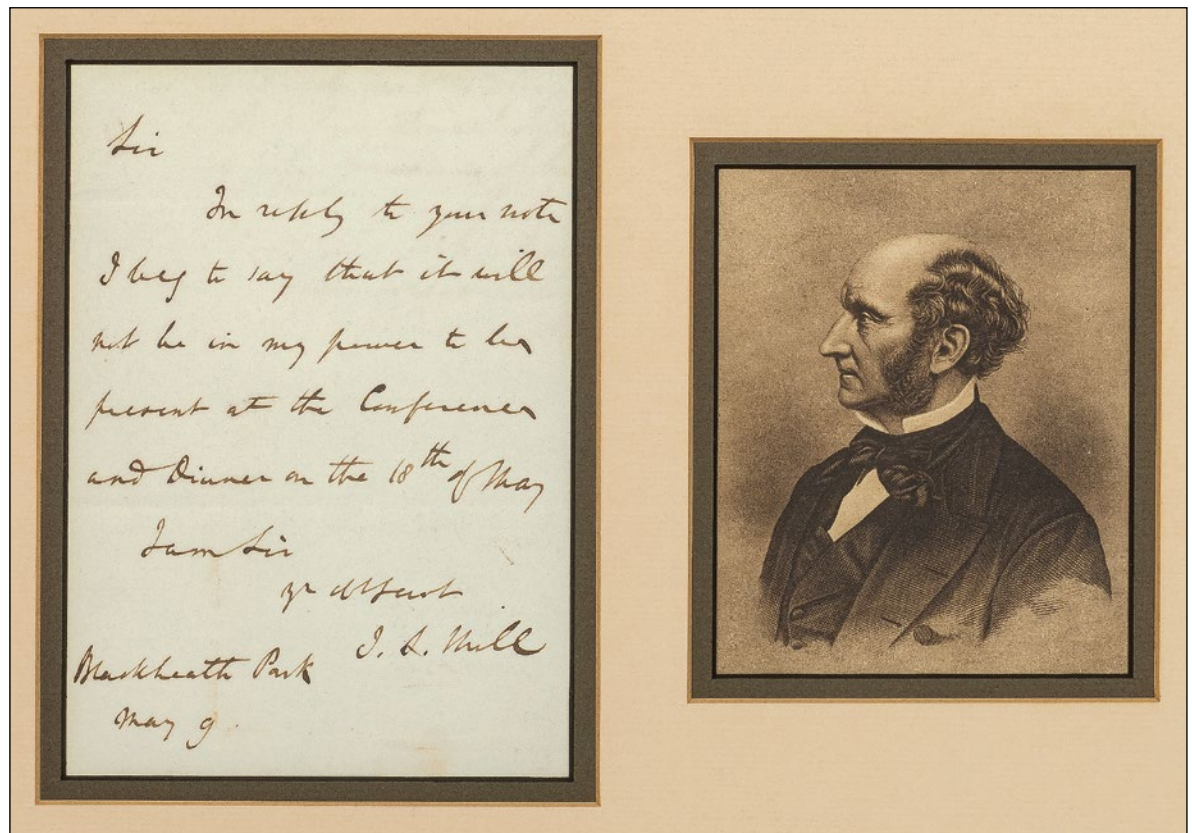 Sir
In reply to your note
I beg to say that it will
not be in my power to be
present at the Conference
and Dinner on the 18th of May
I am Sir
yr obt Servt
J. S. Mill
Blackheath Park
May 9.